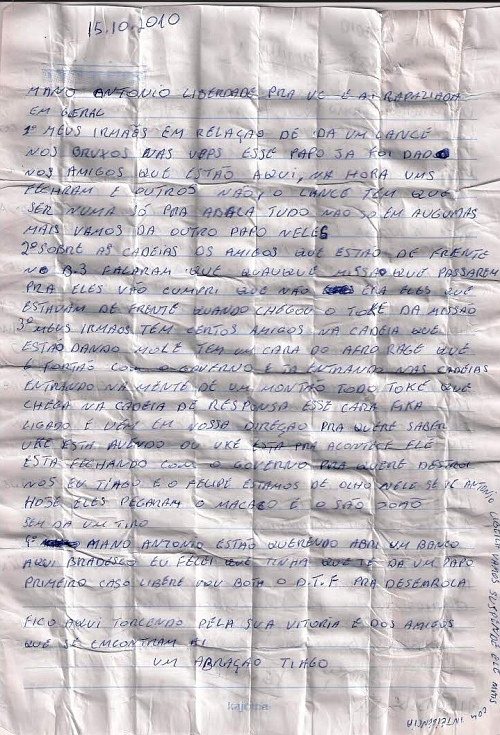 15.10.2010
MANO ANTONIO LIBERDADE PRA VC E A RAPAZIADA
EM GERAL
1º MEUS IRMÃES EM RELAÇÃO DE DA UM LANCE
NOS BRUXOS NAS UPPS ESSE PAPO JA FOI DADO
NOS AMIGOS QUE ESTÃO AQUI, NA HORA UMS
FECHARAM E OUTROS NÃO, O LANCE TEM QUE
SER NUMA SÓ PRA ABALA TUDO NÃO SO EM AUGUMAS
MAIS VAMOS DA OUTRO PAPO NELES
2º SOBRE AS CADEIAS OS AMIGOS QUE ESTÃO DE FRENTE
NO B.3 FALARAM QUE QUAUQUE MISSÃO QUE PASSAREM
PRA ELES VÃO CUMPRI QUE NÃO ERA ELES QUE
ESTAVAM DE FRENTE QUANDO CHEGOU O TOKE DA MISSÃO
3º MEUS IRMÃOS TEM CERTOS AMIGOS NA CADEIA QUE
ESTÃO DANDO MOLE TEM UM CARA DO AFRO RAGE QUE
É FORTÃO COM O GOVERNO E TA ENTRANDO NAS CADEIAS
ENTRANDO NA MENTE DE UM MONTÃO TODO TOKE QUE
CHEGA NA CADEIA DE RESPONSA ESSE CARA FIKA
LIGADO E VEM EM NOSSA DIREÇÃO PRA QUERE SABER
UKE ESTA AVENDO OU UKE ESTA PRA ACONTECE ELE
ESTA FECHANDO COM O GOVERNO PRA QUERE DESTROI
NOS EU TIAGO E O FELIPE ESTAMOS DE OLHO NELE SE VC ANTONIO
LIBERA VAMOS SUSPENDE ELE MAS
COM INTELIGÊNCIA
HOJE ELES PEGARAM O MACACO E O SÃO JOÃO
SEM DA UM TIRO
4º MANO ANTONIO ESTÃO QUERENDO ABRI UM BANCO
AQUI BRADESCO EU FELEI QUE TINHA QUE TE DA UM PAPO
PRIMEIRO CASO LIBERE VOU BOTA O D.T.F PRA DESEAROLA
FICO AQUI TORCENDO PELA SUA VITORIA E DOS AMIGOS
QUE SE EMCONTRAM AI
UM ABRAÇÃO TIAGO
kajoma